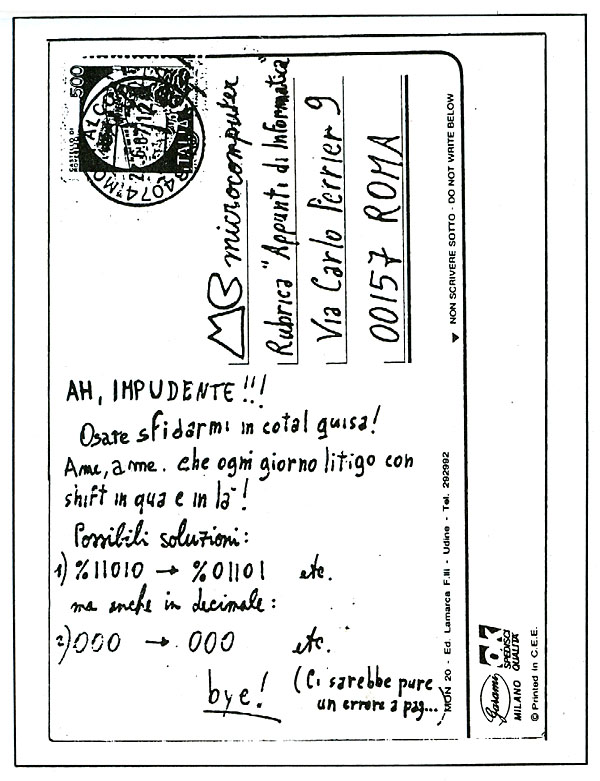 500
ITALIA
MC microcomputer
Rubrica "Appunti di Informatica"
Via Carlo Perrier 9
00157 ROMA
AH, IMPUDENTE!!!
Osare sfidarmi in cotal guisa!
A me, a me. che ogni giorno litigo con
shift in qua e in là!
Possibili soluzioni:
1) %11010 → %01101 etc.
ma anche in decimale:
2) 000 → 000 etc.
bye! (Ci sarebbe pure
un errore a pag...)
▼ NON SCRIVERE SOTTO - DO NOT WRITE BELOW
MON 20 - Ed. Lamarca F.lli - Udine - Tel. 292992
Garami
MILANO
SPEDISCI
QUALITÀ
© Printed in C.E.E.